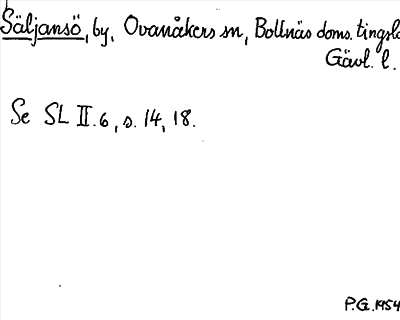 Säljansö, by, Ovanåkers sn, Bollnäs doms. tingsla
Gävl. l.
Se SL II.6, s. 14, 18.
P.G. 1954